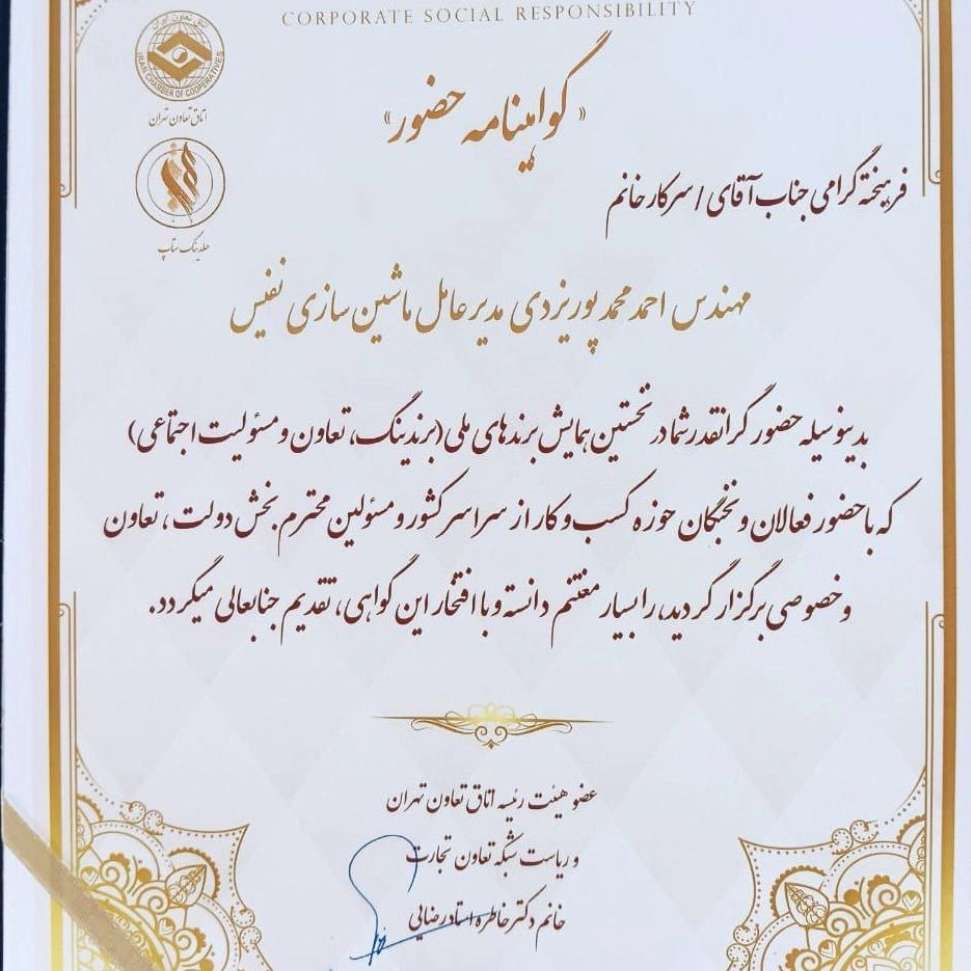 CORPORATE SOCIAL RESPONSIBILITY
اتاق تعاون ایران
IRAN CHAMBER OF COOPERATIVES
اتاق تعاون تهران
هلدینگ ستاپ
« گواهینامه حضور »
فرهیخته گرامی جناب آقای / سرکار خانم
مهندس احمد محمد پور یزدی مدیرعامل ماشین سازی نفیس
بدینوسیله حضور گرانقدر شما در نخستین همایش برندهای ملی (برندینگ، تعاون و مسئولیت اجتماعی)
که با حضور فعالان و نخبگان حوزه کسب و کار از سراسر کشور و مسئولین محترم بخش دولت ، تعاون
و خصوصی برگزار گردید، را بسیار مغتنم دانسته و با افتخار این گواهی، تقدیم جنابعالی میگردد.
عضو هیئت رئیسه اتاق تعاون تهران
و ریاست شبکه تعاون تجارت
خانم دکتر خاطره استاد رضایی